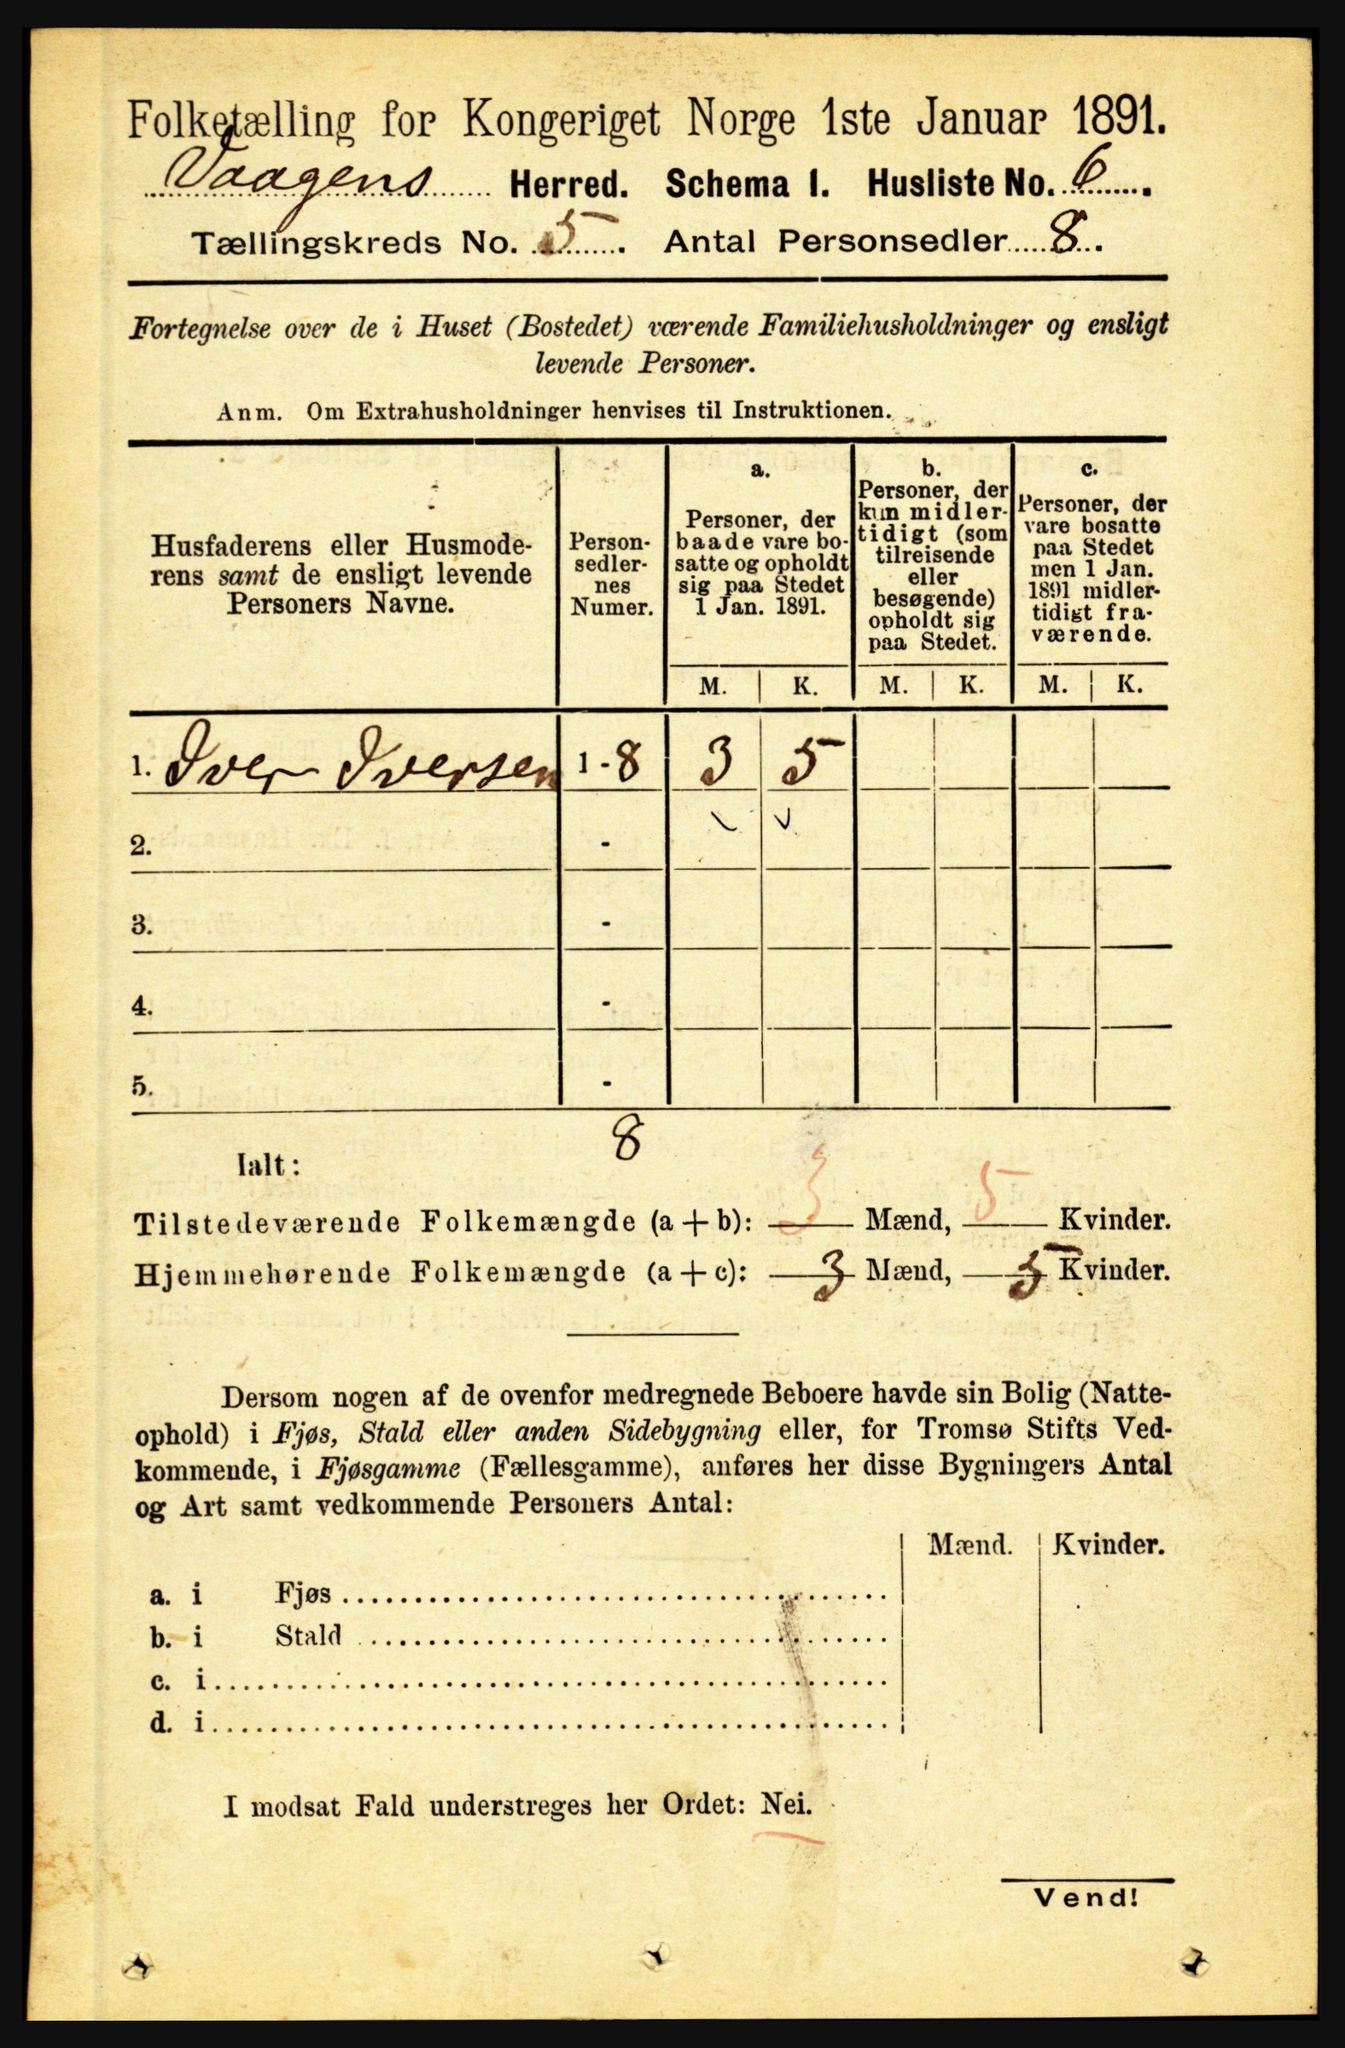 Folketælling for Kongeriget Norge 1ste Januar 1891.
Vaagens Herred. Schema 1. Husliste No. 6.
Tællingskreds No. 5. Antal Personsedler 8.
Fortegnelse over de i Huset (Bostedet) værende Familiehusholdninger og ensligt
levende Personer.
Anm. Om Extrahusholdninger henvises til Instruktionen.
Husfaderens eller Husmode-
rens samt de ensligt levende
Personers Navne.
Person-
sedler-
nes
Numer.
a.
Personer, der
baade vare bo-
satte og opholdt
sig paa Stedet
1 Jan. 1891.
b.
Personer, der
kun midler-
tidigt (som
tilreisende
eller
besøgende)
opholdt sig
paa Stedet.
c.
Personer, der
vare bosatte
paa Stedet
men 1 Jan.
1891 midler-
tidigt fra-
værende.
M. K. M. K. M. K.
1. Iver Iversen 1 - 8 3 5
2. -
3. -
4. -
5. -
8
Ialt:
Tilstedeværende Folkemængde (a + b): 3 Mænd, 5 Kvinder.
Hjemmehørende Folkemængde (a + c): 3 Mænd, 5 Kvinder.
Dersom nogen af de ovenfor medregnede Beboere havde sin Bolig (Natte-
ophold) i Fjøs, Stald eller anden Sidebygning eller, for Tromsø Stifts Ved-
kommende, i Fjøsgamme (Fællesgamme), anføres her disse Bygningers Antal
og Art samt vedkommende Personers Antal:
Mænd. Kvinder.
a. i Fjøs
b. i Stald
c. i
d. i
I modsat Fald understreges her Ordet: Nei.
Vend!